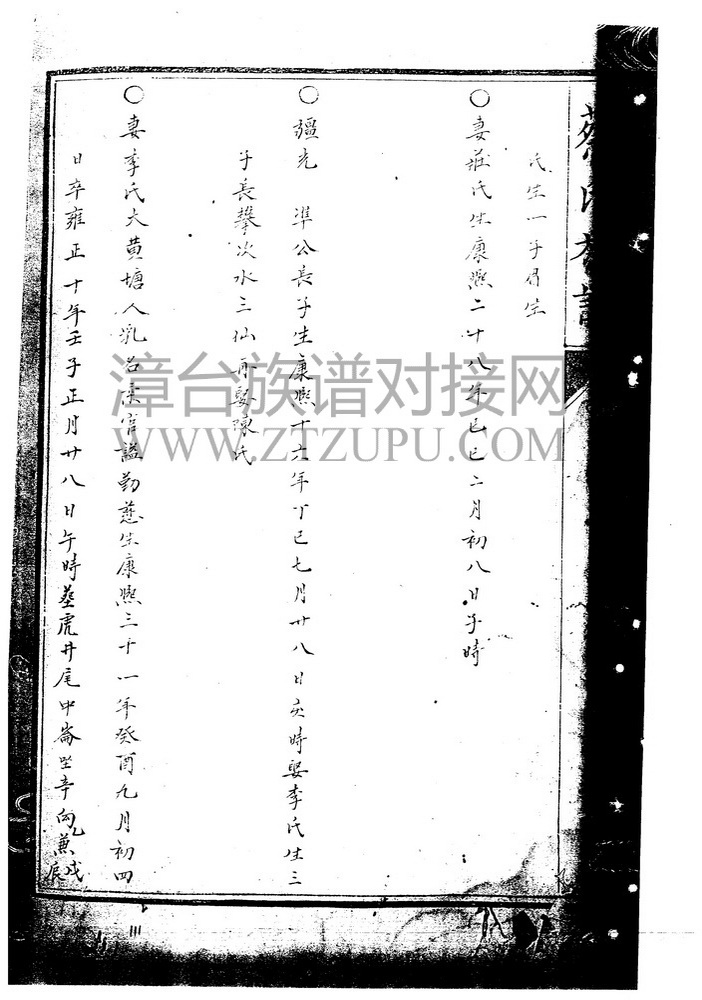 蔡氏族譜
氏生一子得生
〇妻莊氏生康熙二十八年己巳二月初八日子時
〇疆先 準公長子生康熙十六年丁巳七月廿八日亥時娶李氏生三
子長攀次水三仙再娶陳氏
〇妻李氏大黄塘人乳名 官謚勤慈生康熙三十一年癸酉九月初四
日卒雍正十年壬子正月廿八日午時葬虎井尾中崙坐辛向乙兼戌辰
漳台族谱对接网
WWW.ZTZUPU.COM